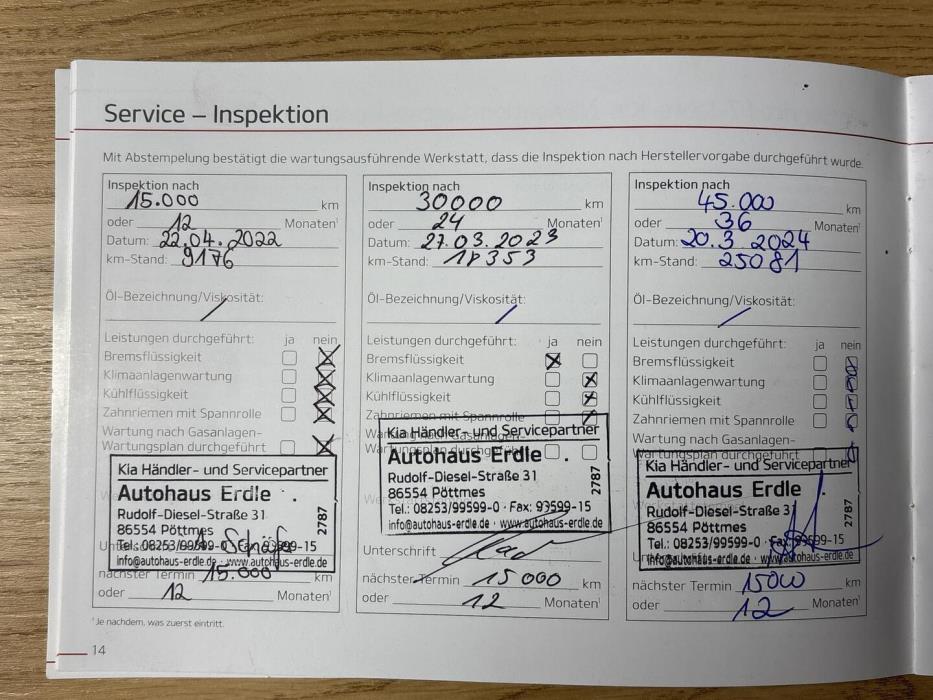 Service – Inspektion
Mit Abstempelung bestätigt die wartungsausführende Werkstatt, dass die Inspektion nach Herstellervorgabe durchgeführt wurde.
Inspektion nach
15.000 km
oder 12 Monaten¹
Datum: 22.04.2022
km-Stand: 9176
Öl-Bezeichnung/Viskosität:
/
Leistungen durchgeführt: ja nein
Bremsflüssigkeit
Klimaanlagenwartung
Kühlflüssigkeit
Zahnriemen mit Spannrolle
Wartung nach Gasanlagen-
Wartungsplan durchgeführt
Kia Händler- und Servicepartner
Autohaus Erdle
Rudolf-Diesel-Straße 31
86554 Pöttmes
Tel.: 08253/99599-0 · Fax: 99599-15
info@autohaus-erdle.de · www.autohaus-erdle.de
2787
nächster Termin 15.000 km
oder 12 Monaten¹
Inspektion nach
30000 km
oder 24 Monaten¹
Datum: 27.03.2023
km-Stand: 18353
Öl-Bezeichnung/Viskosität:
/
Leistungen durchgeführt: ja nein
Bremsflüssigkeit
Klimaanlagenwartung
Kühlflüssigkeit
Zahnriemen mit Spannrolle
Kia Händler- und Servicepartner
Autohaus Erdle
Rudolf-Diesel-Straße 31
86554 Pöttmes
Tel.: 08253/99599-0 · Fax: 99599-15
info@autohaus-erdle.de · www.autohaus-erdle.de
2787
Unterschrift
nächster Termin 15000 km
oder 12 Monaten¹
Inspektion nach
45.000 km
oder 36 Monaten¹
Datum: 20.3.2024
km-Stand: 25081
Öl-Bezeichnung/Viskosität:
/
Leistungen durchgeführt: ja nein
Bremsflüssigkeit
Klimaanlagenwartung
Kühlflüssigkeit
Zahnriemen mit Spannrolle
Wartung nach Gasanlagen-
Wartungsplan durchgeführt
Kia Händler- und Servicepartner
Autohaus Erdle
Rudolf-Diesel-Straße 31
86554 Pöttmes
Tel.: 08253/99599-0 · Fax: 99599-15
info@autohaus-erdle.de · www.autohaus-erdle.de
2787
nächster Termin 15000 km
oder 12 Monaten¹
¹ Je nachdem, was zuerst eintritt.
14